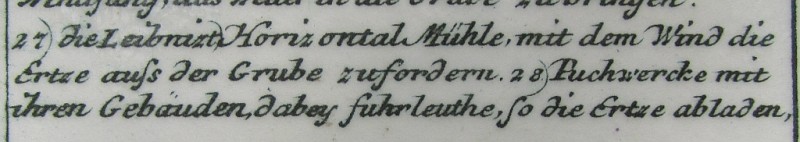 das in die Grube zu bringen.
27) die Leibnizt, Horizontal Mühle, mit dem Wind die
Ertze aufs der Grube zufordern. 28) Puchwercke mit
ihren Gebäuden, dabey fuhrleuthe, so die Ertze abladen,